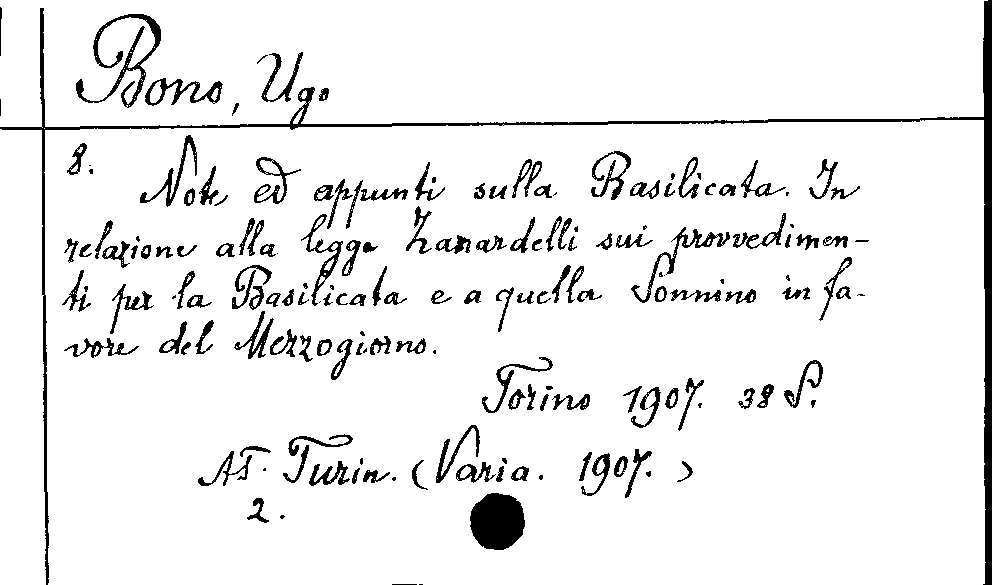 Bono, Ugo
8.
Note ed appunti sulla Basilicata. In
relazione alla legge Zanardelli sui provvedimen-
ti per la Basilicata e a quella Sonnino in fa-
vore del Mezzogiorno.
Torino 1907. 38 S.
AT. Turin. (Varia. 1907.)
2.